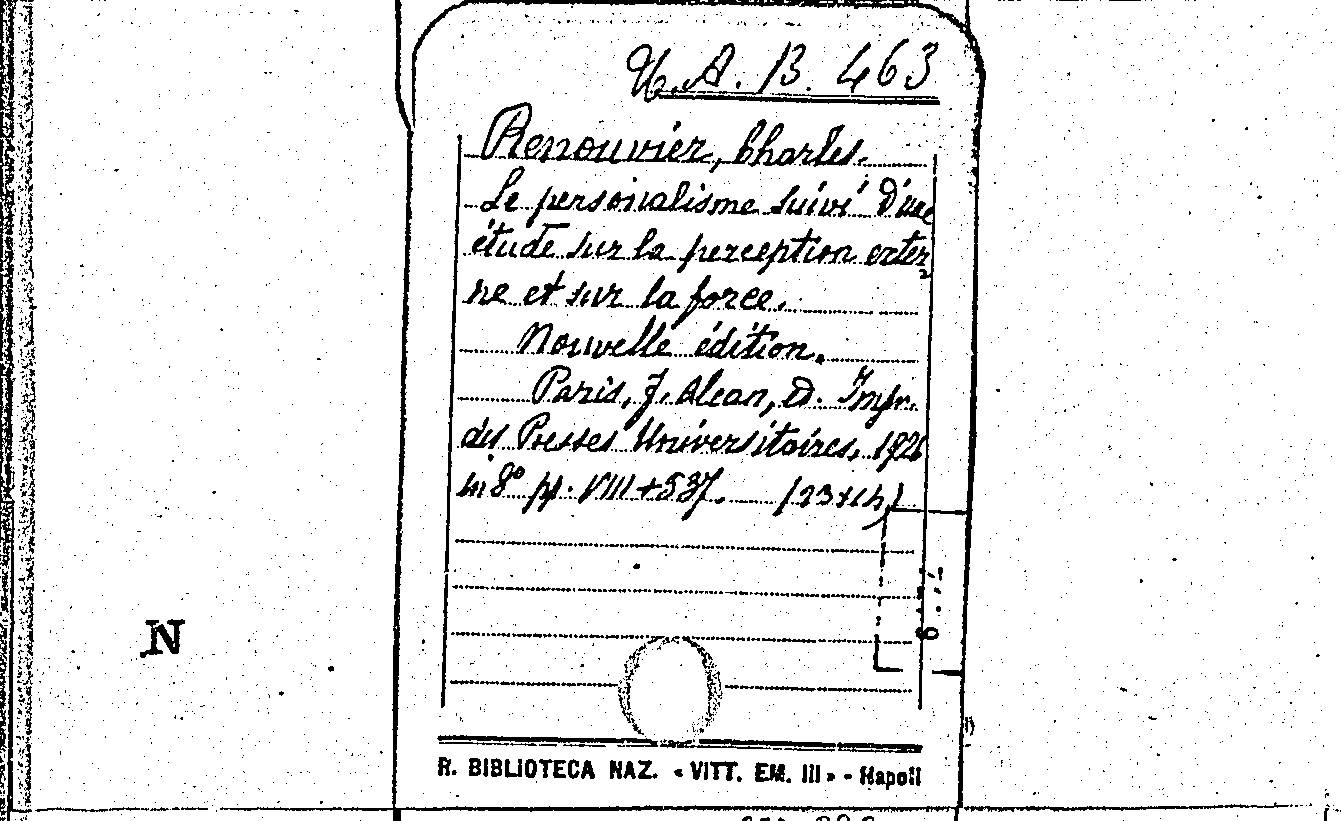 U.A.B. 463
Renouvier, Charles.
Le personalisme suivi d'une
étude sur la perception exter
ne et sur la force.
Nouvelle édition.
Paris, F. Alcan, ed. Impr.
des Presses Universitaires, 1926
in 8° pp. VIII + 537.
N
R. BIBLIOTECA NAZ. « VITT. EM. III » - Napoli